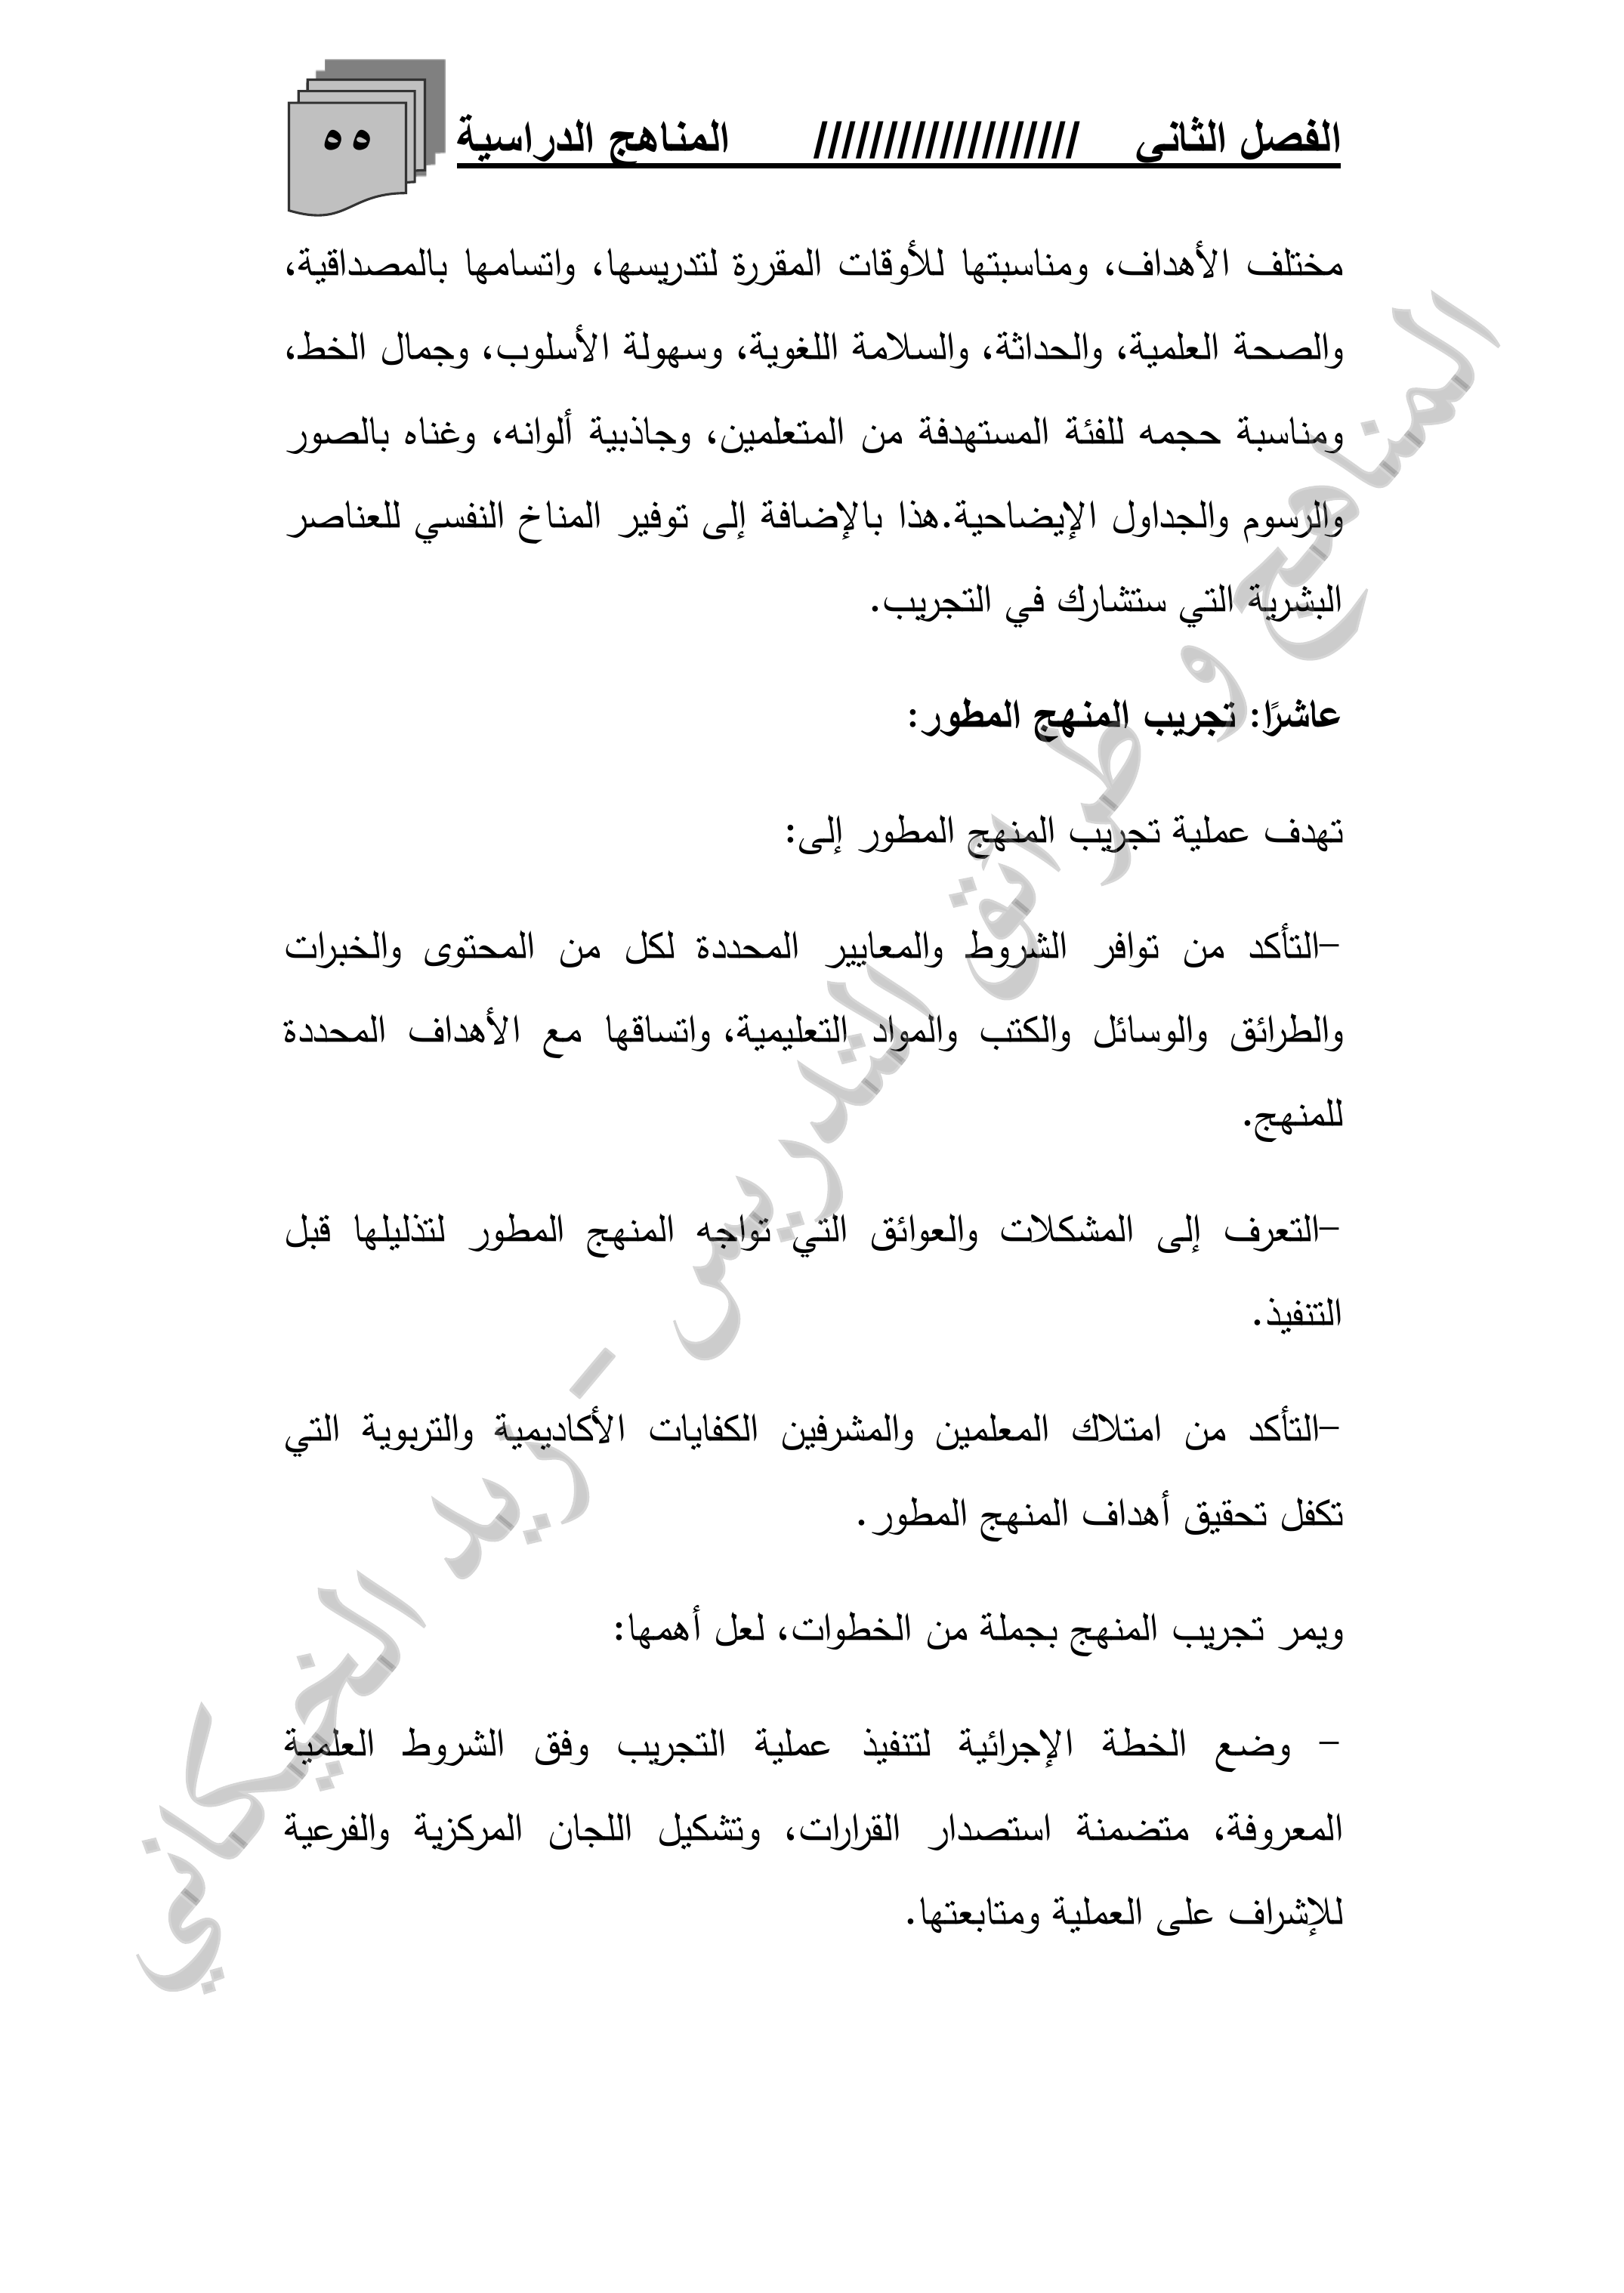 الفصل الثاني /////////////////// المناهج الدراسية ٥٥
مختلف الأهداف، ومناسبتها للأوقات المقررة لتدريسها، واتسامها بالمصداقية،
والصحة العلمية، والحداثة، والسلامة اللغوية، وسهولة الأسلوب، وجمال الخط،
ومناسبة حجمه للفئة المستهدفة من المتعلمين، وجاذبية ألوانه، وغناه بالصور
والرسوم والجداول الإيضاحية.هذا بالإضافة إلى توفير المناخ النفسي للعناصر
البشرية التي ستشارك في التجريب.
عاشرًا: تجريب المنهج المطور:
تهدف عملية تجريب المنهج المطور إلى:
-التأكد من توافر الشروط والمعايير المحددة لكل من المحتوى والخبرات
والطرائق والوسائل والكتب والمواد التعليمية، واتساقها مع الأهداف المحددة
للمنهج.
-التعرف إلى المشكلات والعوائق التي تواجه المنهج المطور لتذليلها قبل
التنفيذ.
-التأكد من امتلاك المعلمين والمشرفين الكفايات الأكاديمية والتربوية التي
تكفل تحقيق أهداف المنهج المطور.
ويمر تجريب المنهج بجملة من الخطوات، لعل أهمها:
- وضع الخطة الإجرائية لتنفيذ عملية التجريب وفق الشروط العلمية
المعروفة، متضمنة استصدار القرارات، وتشكيل اللجان المركزية والفرعية
للإشراف على العملية ومتابعتها.
المناهج و طرائق التدريس - زيد الخيكاني